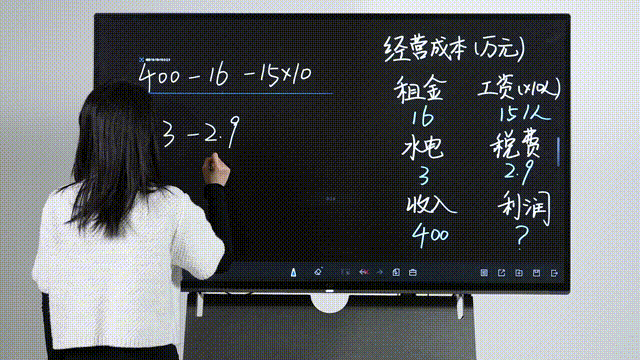 经营成本(万元)
400-16-15×10
租金 工资(×10人)
16 15/人
3-2.9
水电 税费
3 2.9
收入 利润
400 ?